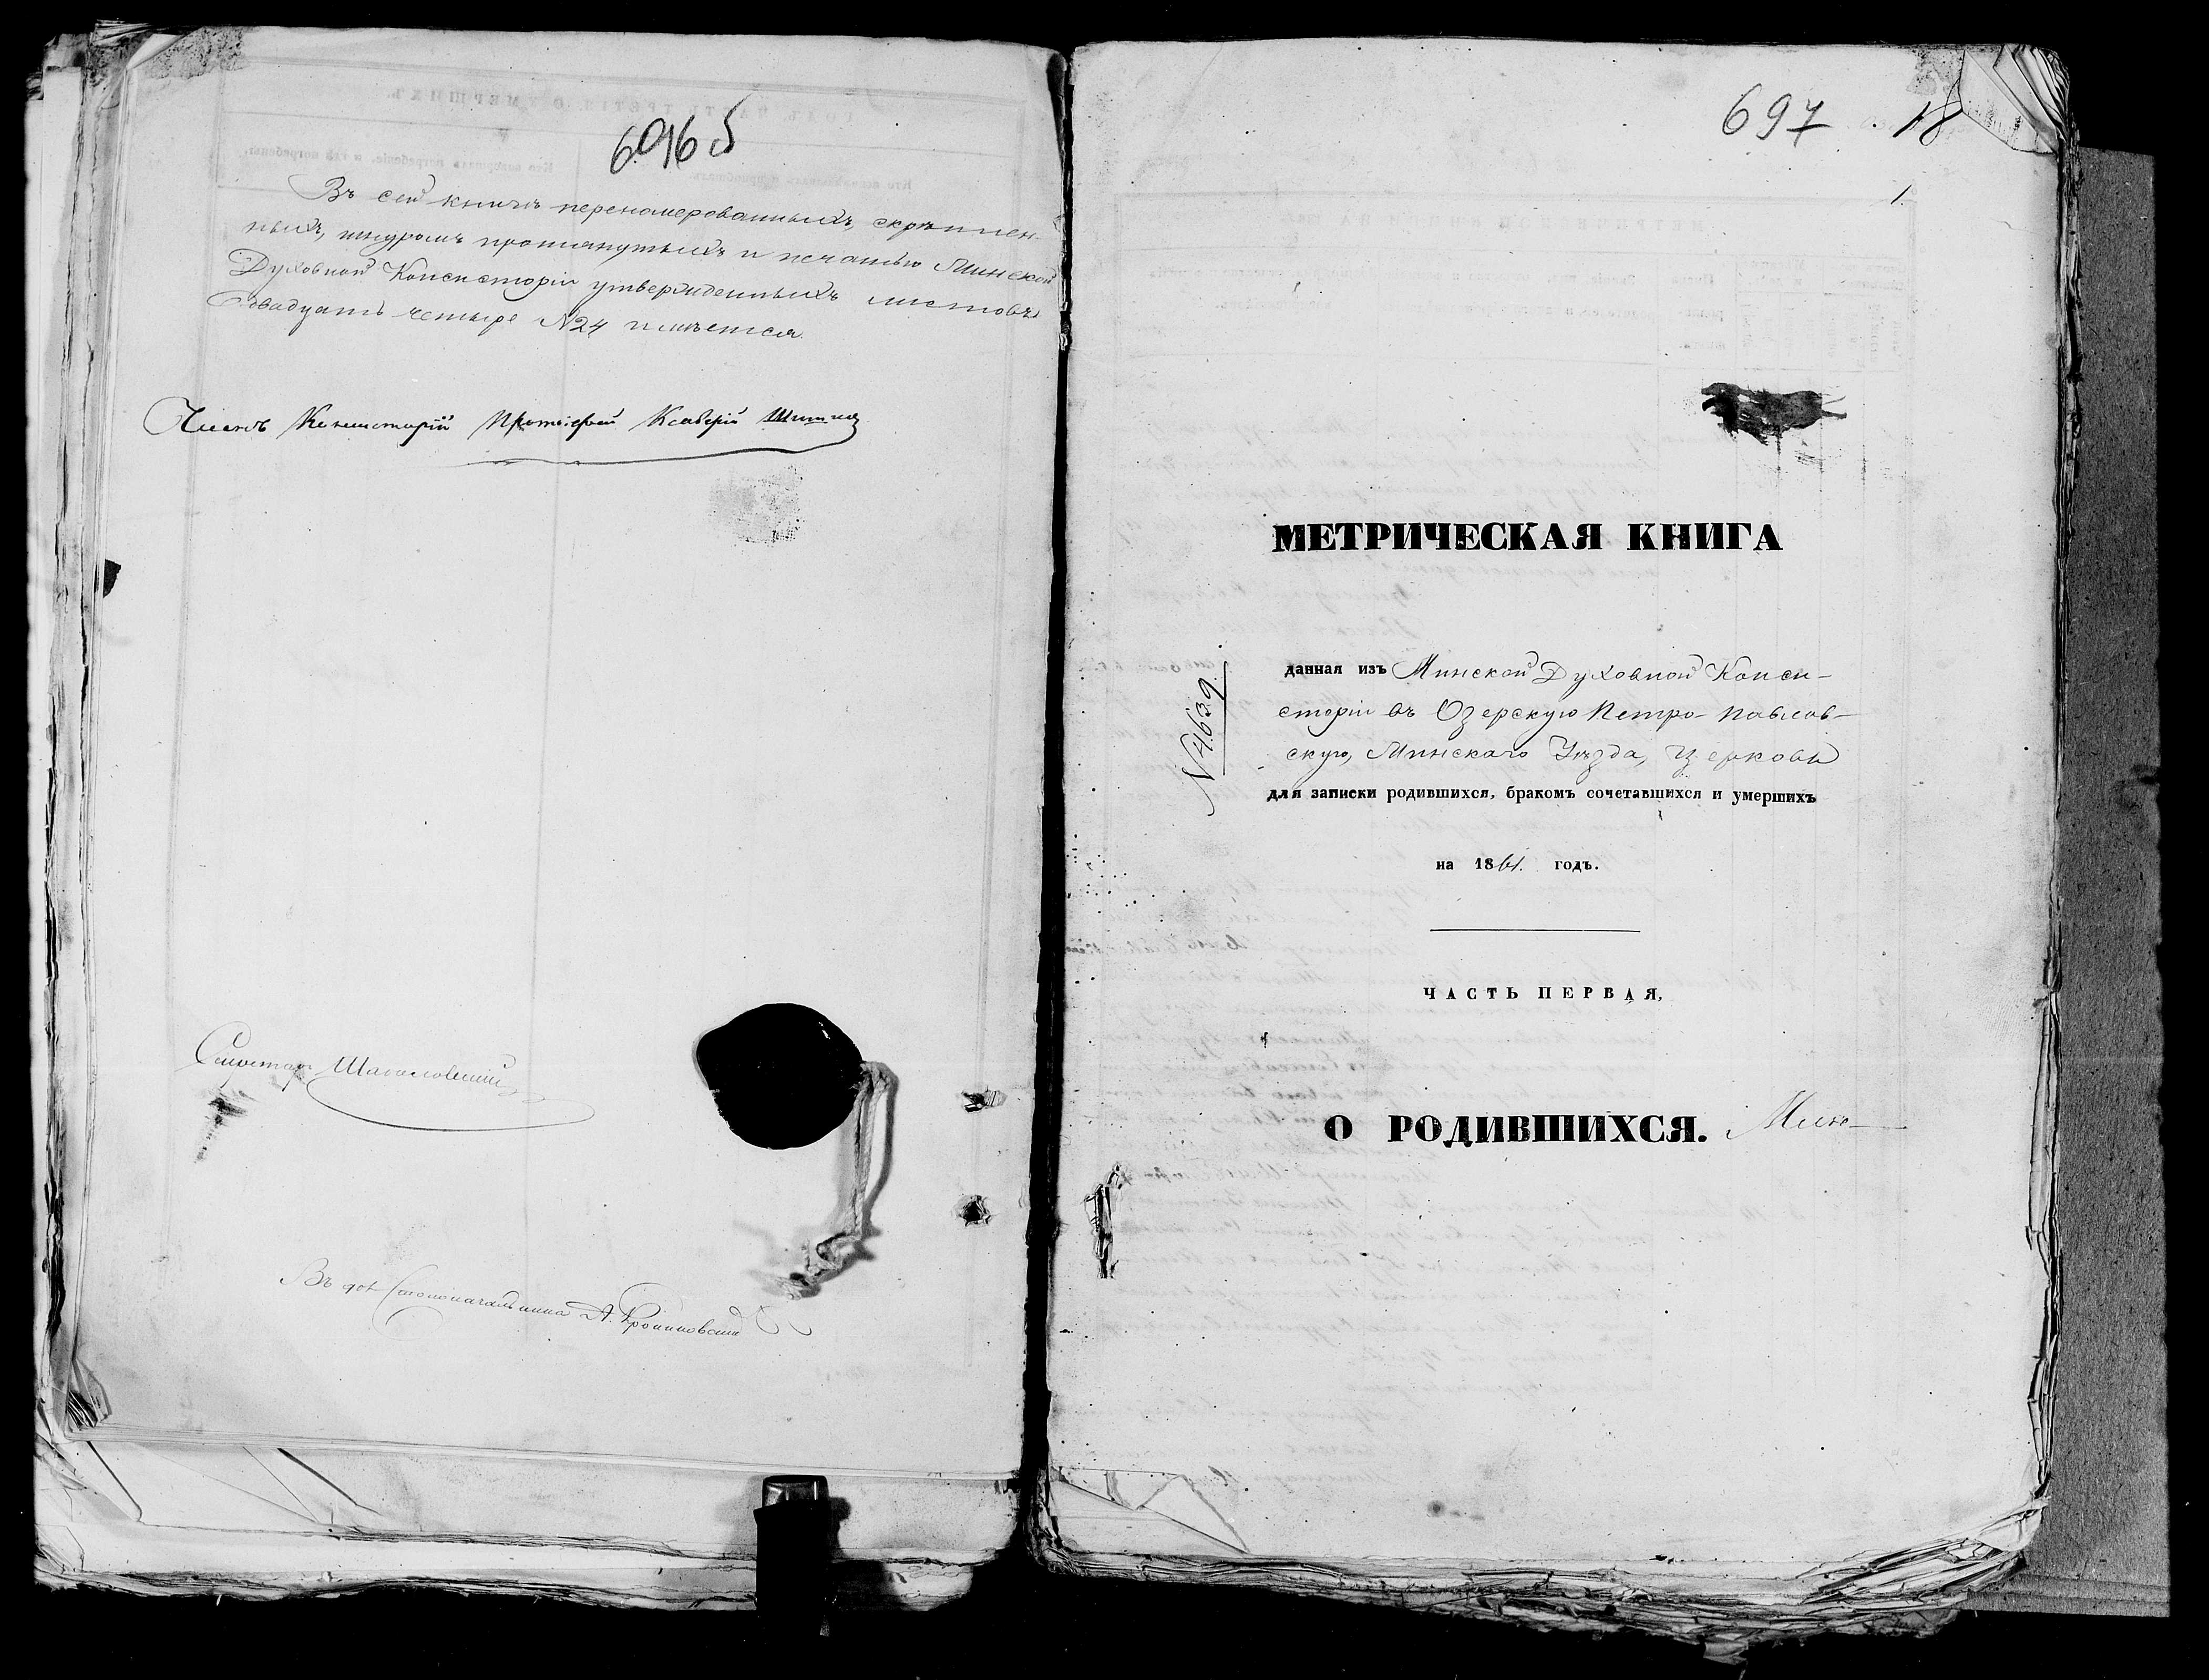 696 б
Въ сей книгѣ перенумерованныхъ, скрѣплен-
ныхъ, шнуромъ протянутыхъ и печатью Минской
Духовной Консисторіи утвержденныхъ листовъ
двадцать четыре №24 имѣется.
Членъ Консисторіи Протоіерей Ксаверій
Секретарь
Въ дол Столоначальника А.
697 18
1.
МЕТРИЧЕСКАЯ КНИГА
№ 4639.
данная изъ Минской Духовной Конси-
сторіи въ Озерскую Петро-Павлов-
скую, Минскаго Уѣзда, церковь
для записки родившихся, бракомъ сочетавшихся и умершихъ
на 1861. годъ.
ЧАСТЬ ПЕРВАЯ,
О РОДИВШИХСЯ.